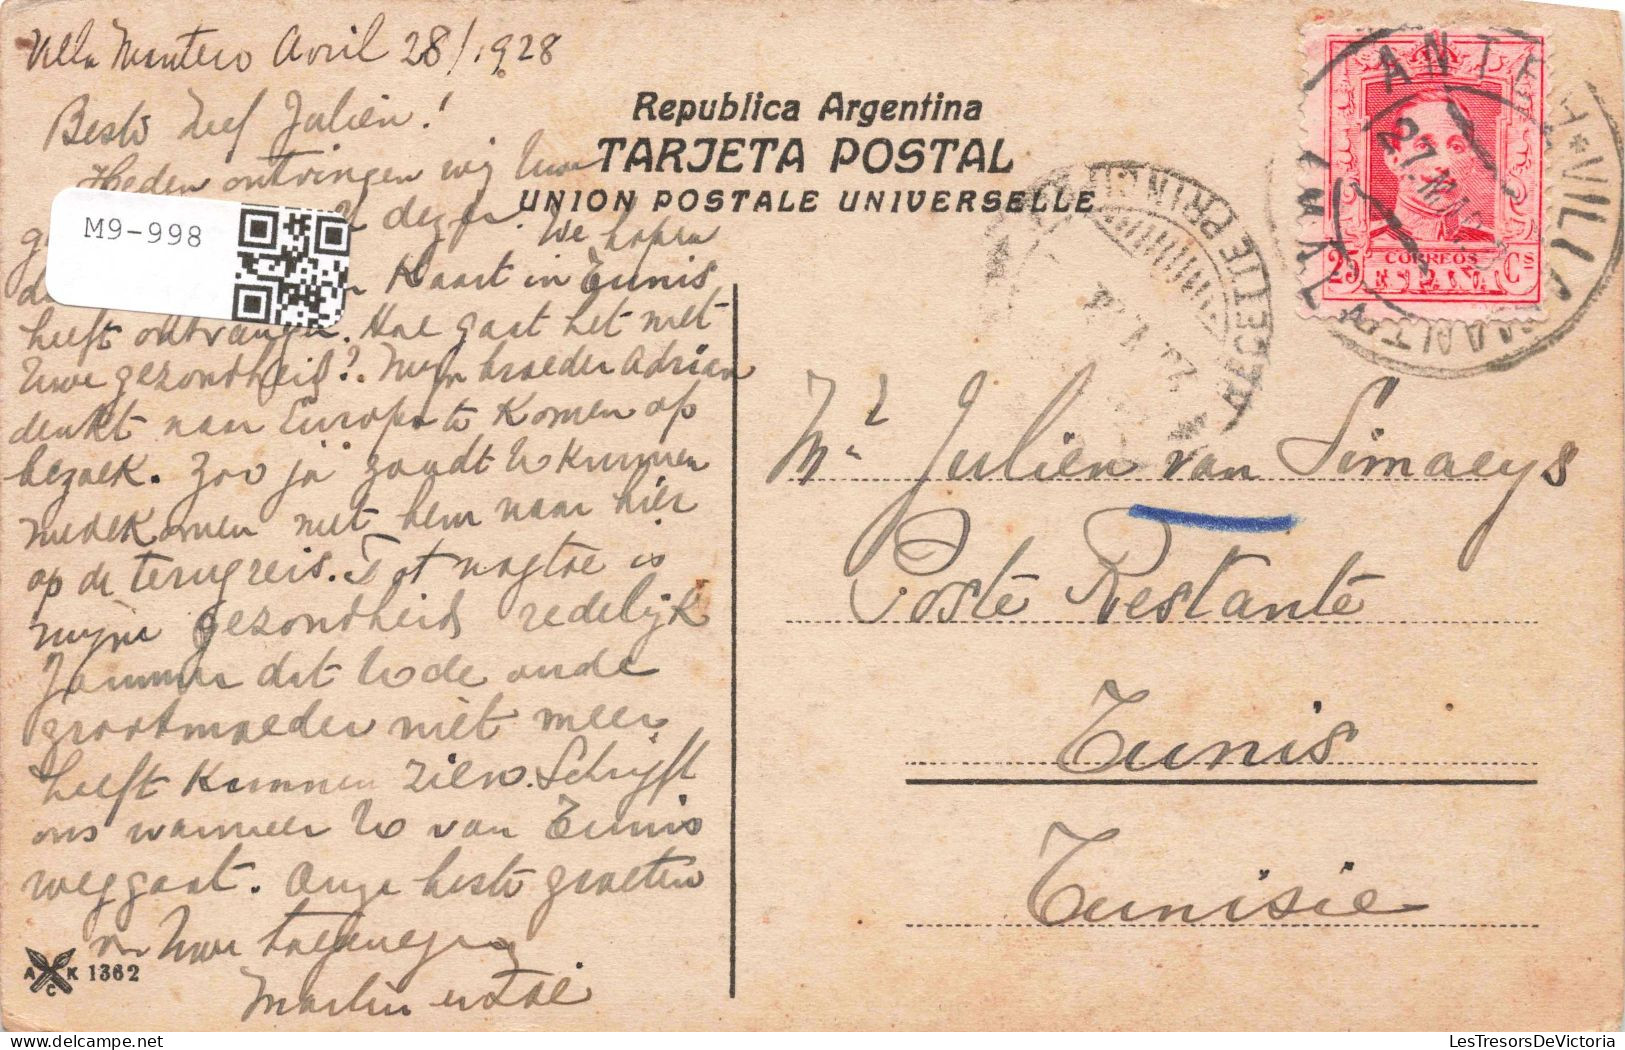 Villa Mantero Avril 28/1928
Beste Neef Julien!
Heden ontvingen wij Uwe
dezen. We hopen
Kaart in Tunis
heeft ontvangen. Hoe gaat het met
Uwe gezondheid? Mijn broeder Adrian
denkt naar Europa te Komen op
bezoek. Zoo ja zoudt U Kunnen
medeKomen met hem naar hier
op de terugreis. Tot nogtoe is
mijne gezondheid redelijk
Jammer dat U de oude
grootmoeder niet meer
heeft Kunnen zien. Schrijft
ons wanneer U van Tunis
weggaat. Onze beste groeten
van Uwe toegenegen
Martin en Zoë
M9-998
A C K 1362
Republica Argentina
TARJETA POSTAL
UNION POSTALE UNIVERSELLE
CORREOS
25 ESPAÑA Cs
RECETTE PRINCIPALE
Mr Julien van Simaeys
Poste Restante
Tunis
Tunisie
LesTresorsDeVictoria